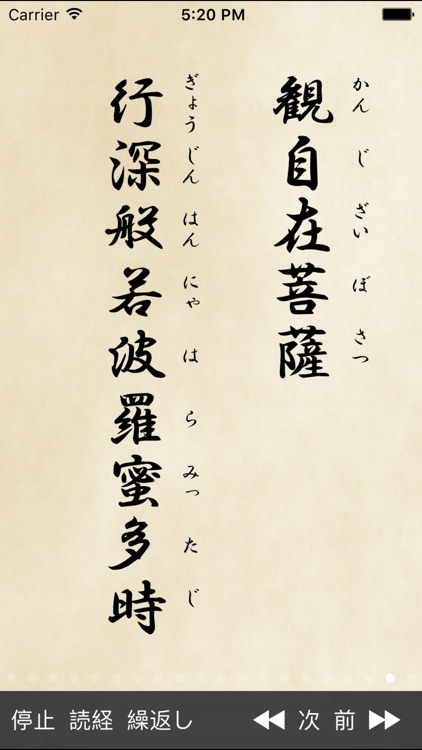 Carrier 5:20 PM
観自在菩薩
かんじざいぼさつ
行深般若波羅蜜多時
ぎょうじんはんにゃはらみったじ
停止 読経 繰返し 次 前